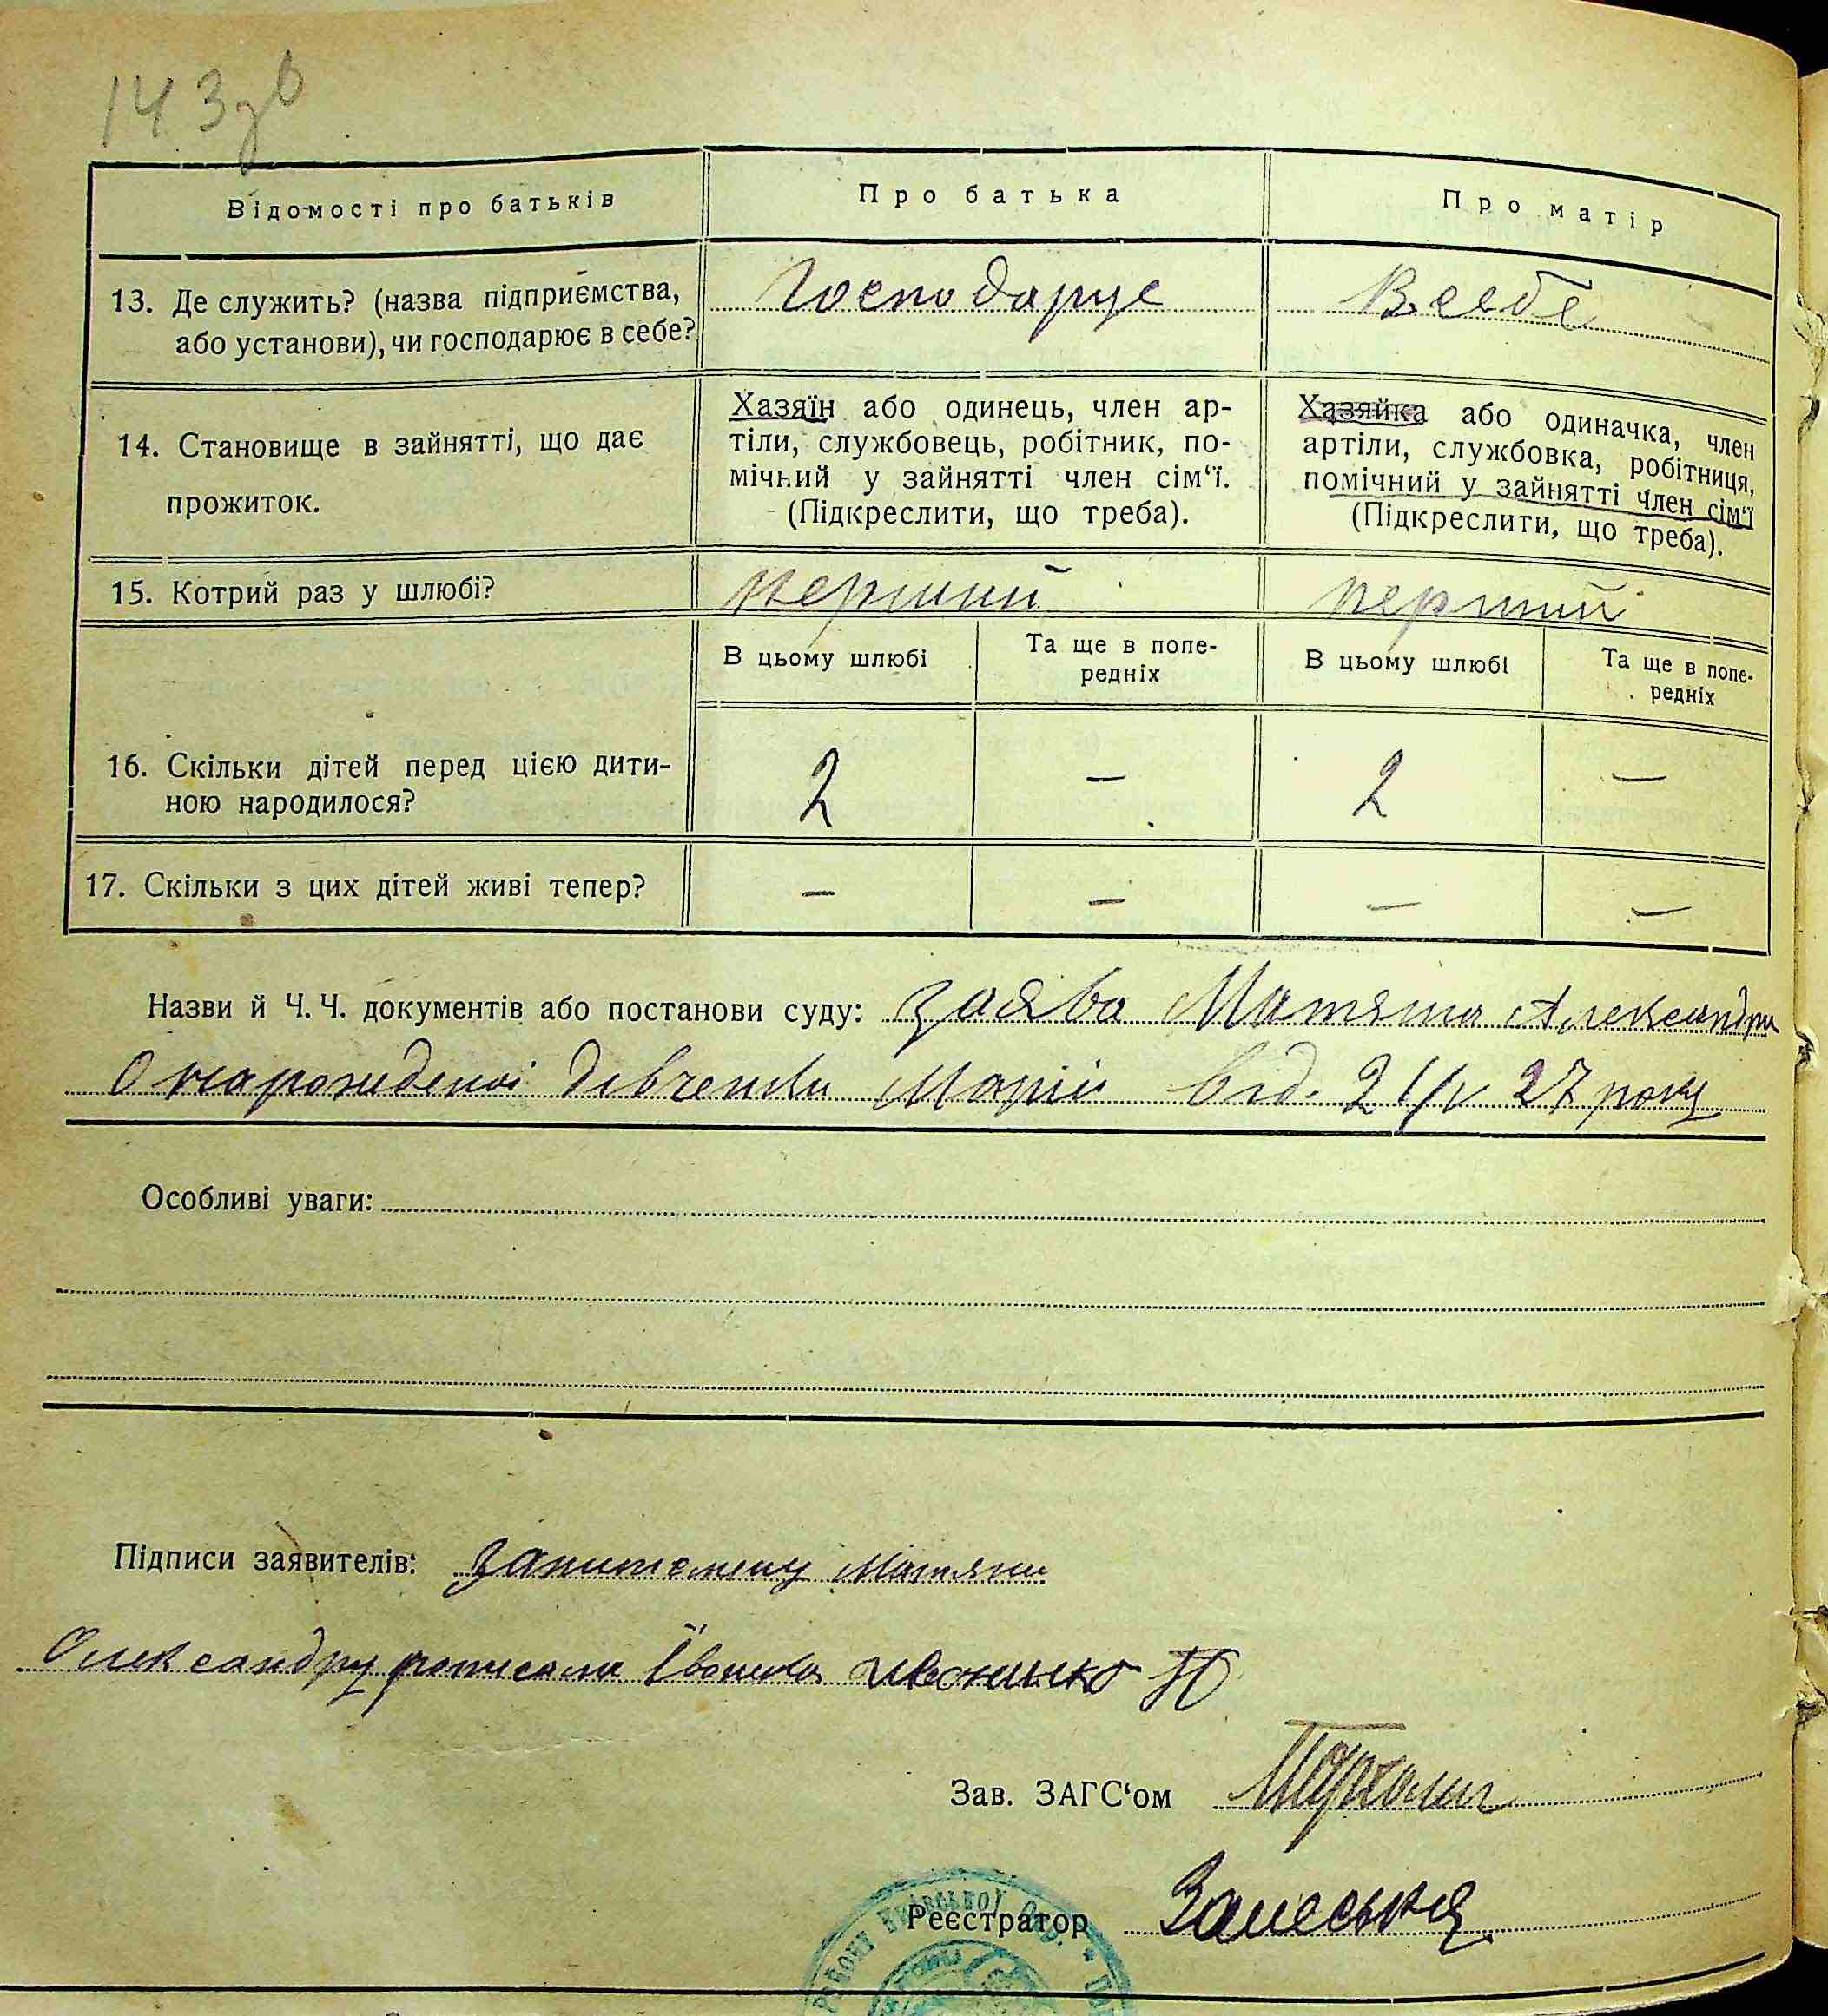 143зв
Відомості про батьків
Про батька
Про матір
13. Де служить? (назва підприємства,
або установи), чи господарює в себе?
Господарує
В себе
14. Становище в зайнятті, що дає
прожиток.
Хазяїн або одинець, член ар-
тіли, службовець, робітник, по-
мічний у зайнятті член сім‘ї.
(Підкреслити, що треба).
Хазяйка або одиначка, член
артіли, службовка, робітниця,
помічний у зайнятті член сім‘ї
(Підкреслити, що треба).
15. Котрий раз у шлюбі?
перший
перший
В цьому шлюбі
Та ще в попе-
редніх
В цьому шлюбі
Та ще в попе-
редніх
16. Скільки дітей перед цією дити-
ною народилося?
2
—
2
—
17. Скільки з цих дітей живі тепер?
—
—
—
—
Назви й Ч. Ч. документів або постанови суду: заява Матяша Александра
О нарожденої дівченки Марії від. 21/V 27 року
Особливі уваги:
Підписи заявителів: Матяша
Олександру
Зав. ЗАГС‘ом
Реєстратор Залеська